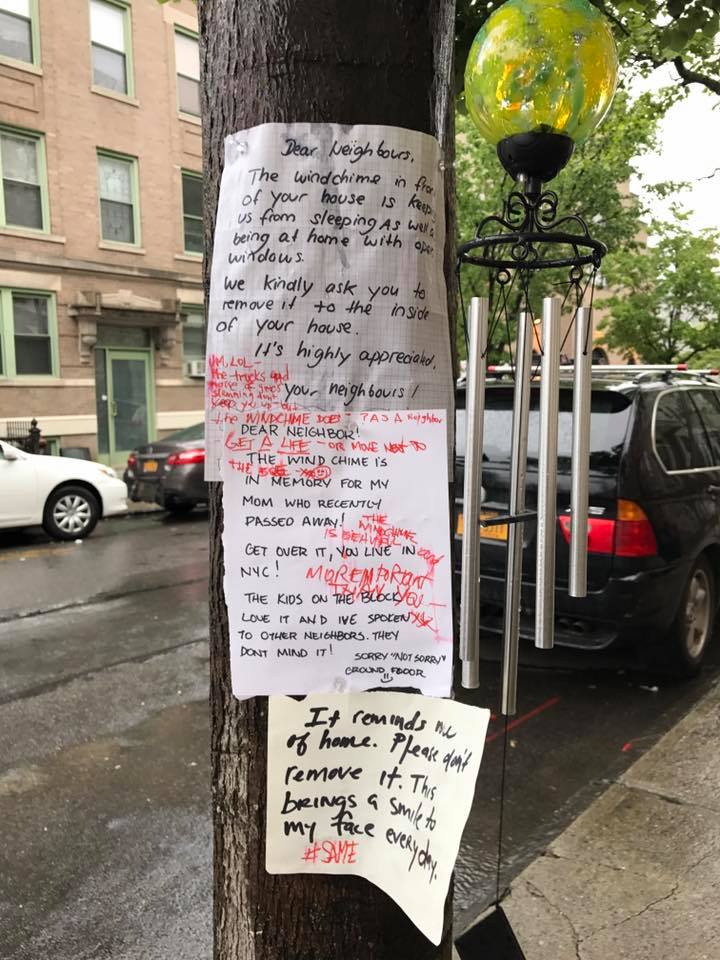 Dear Neighbours,
The windchime in
of your house is
us from sleeping As well as
being at home with
windows.
We kindly ask you to
remove it to the inside
of your house.
It's highly appreciated,
Your neighbours!
UM, LOL -
the trucks and
noise of
slamming don't
keep you up but
the WINDCHIME DOES - A Neighbor
DEAR NEIGHBOR!
GET A LIFE - OR MOVE NEXT TO
THE WIND CHIME IS
THE
IN MEMORY FOR MY
MOM WHO RECENTLY
PASSED AWAY!
THE
WINDCHIME
IS BEAUTIFUL
GET OVER IT, YOU LIVE IN
NYC!
and
MORE IMPORTANT
THAN YOU
THE KIDS ON THE BLOCK
LOVE IT AND IVE SPOKEN
TO OTHER NEIGHBORS. THEY
DONT MIND IT!
SORRY "NOT SORRY"
GROUND FLOOR
It reminds me
of home. Please don't
remove it. This
brings a smile to
my face everyday.
#SAME